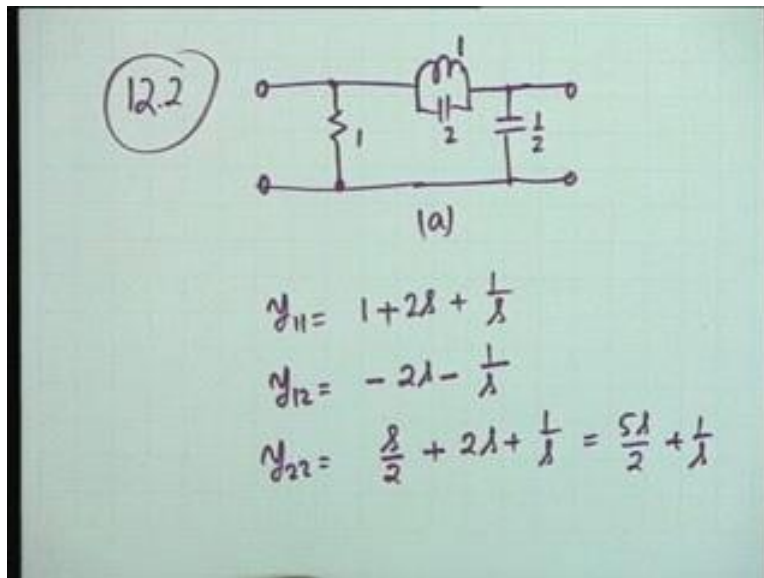 12.2
1
1
2
1/2
(a)
y₁₁ = 1 + 2s + 1/s
y₁₂ = - 2s - 1/s
y₂₂ = s/2 + 2s + 1/s = 5s/2 + 1/s